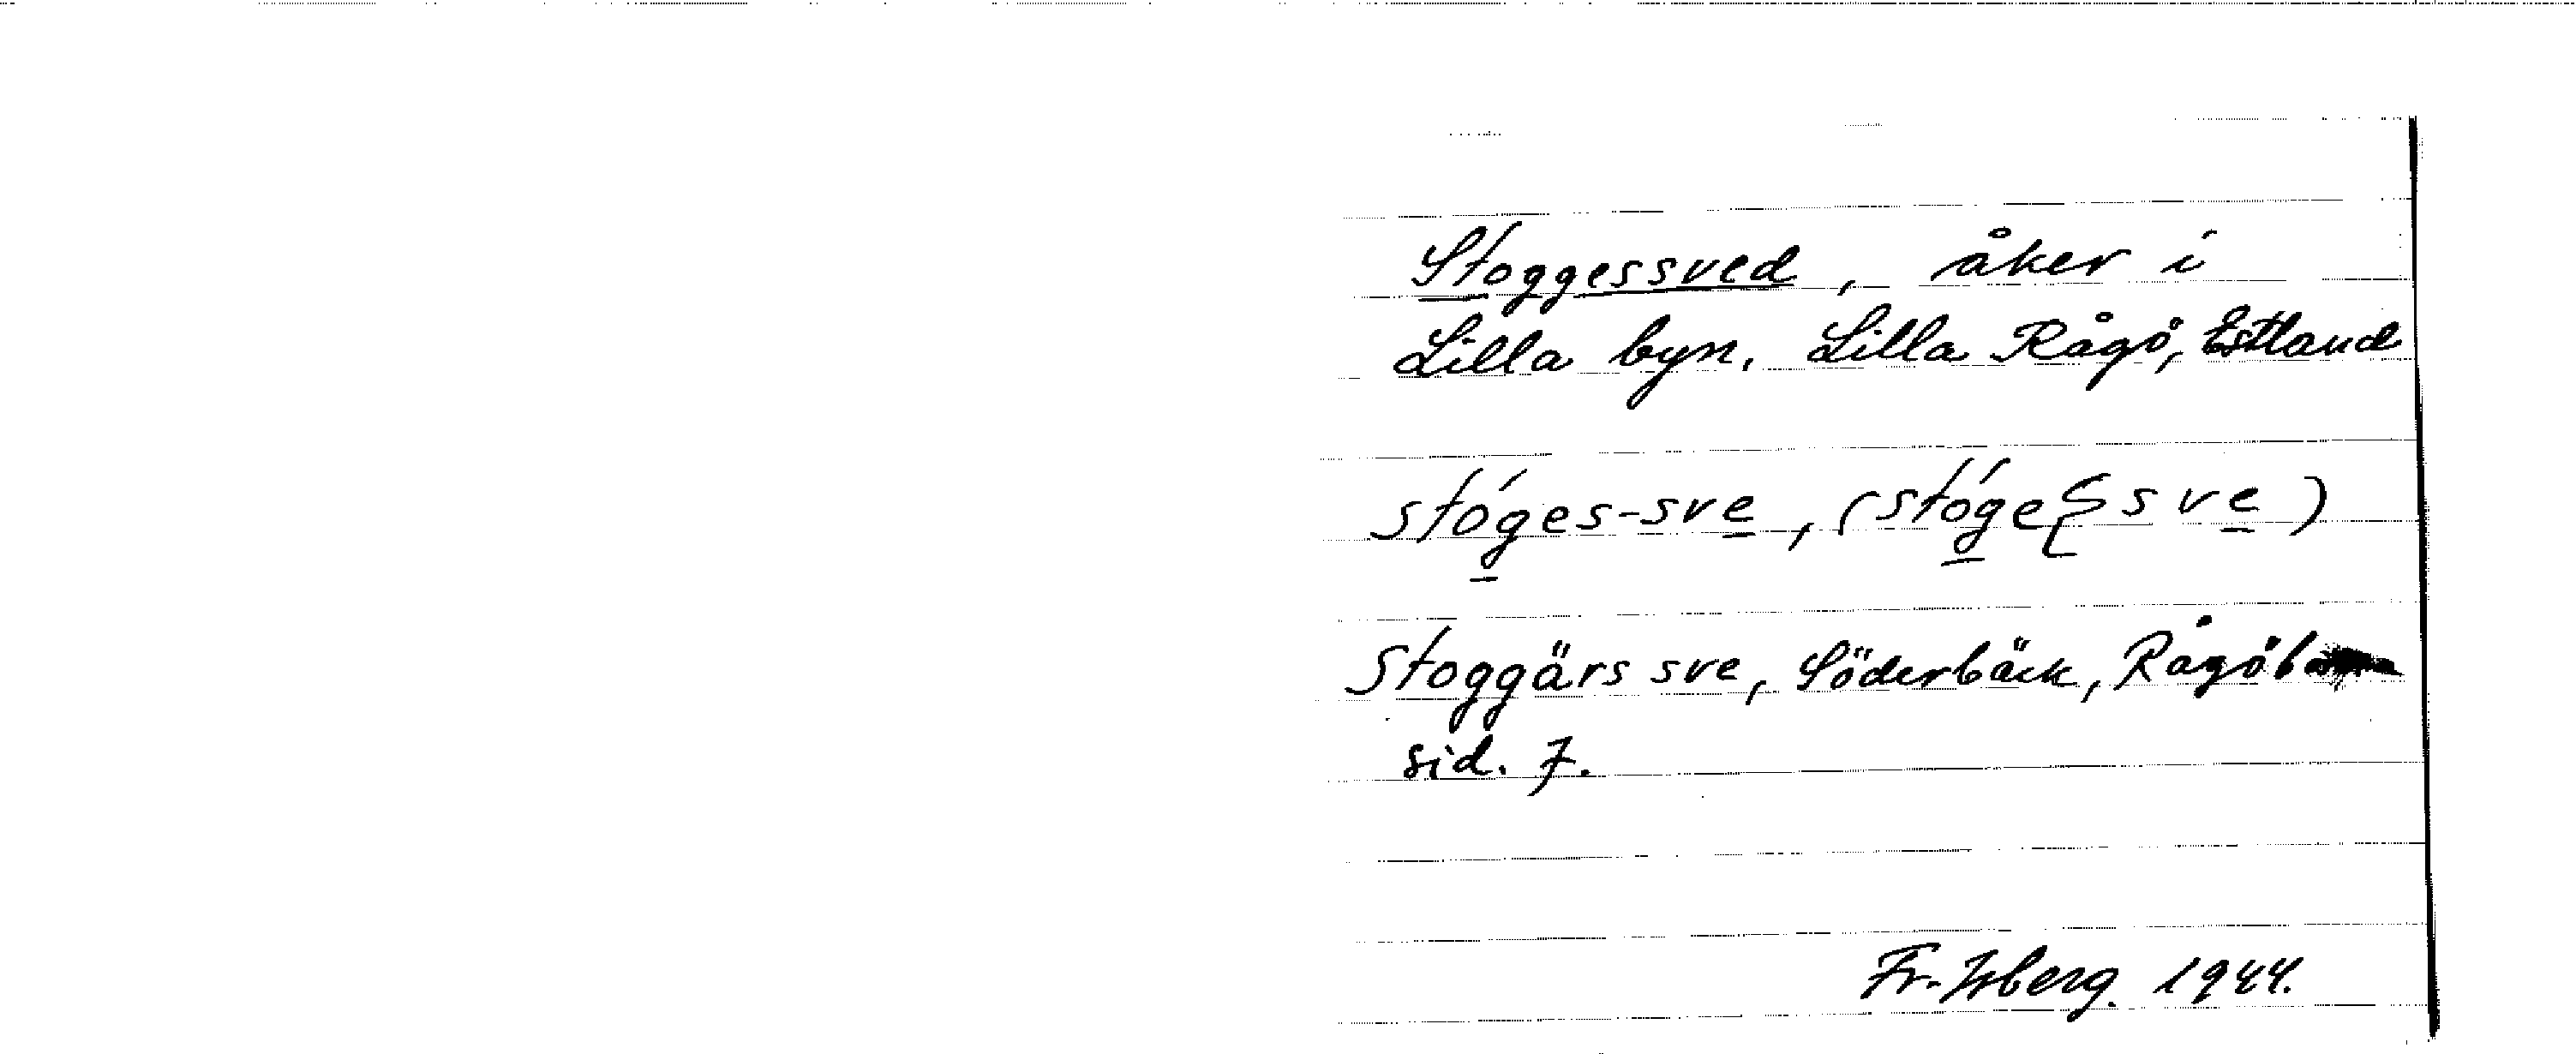 Stoggessved, åker i
Lilla byn. Lilla Rågö, Estland
stóges-sve, (stóge{sve)
Stoggärs sve, Söderbäck, Rågöb
sid. 7.
Fr. Isberg. 1944.